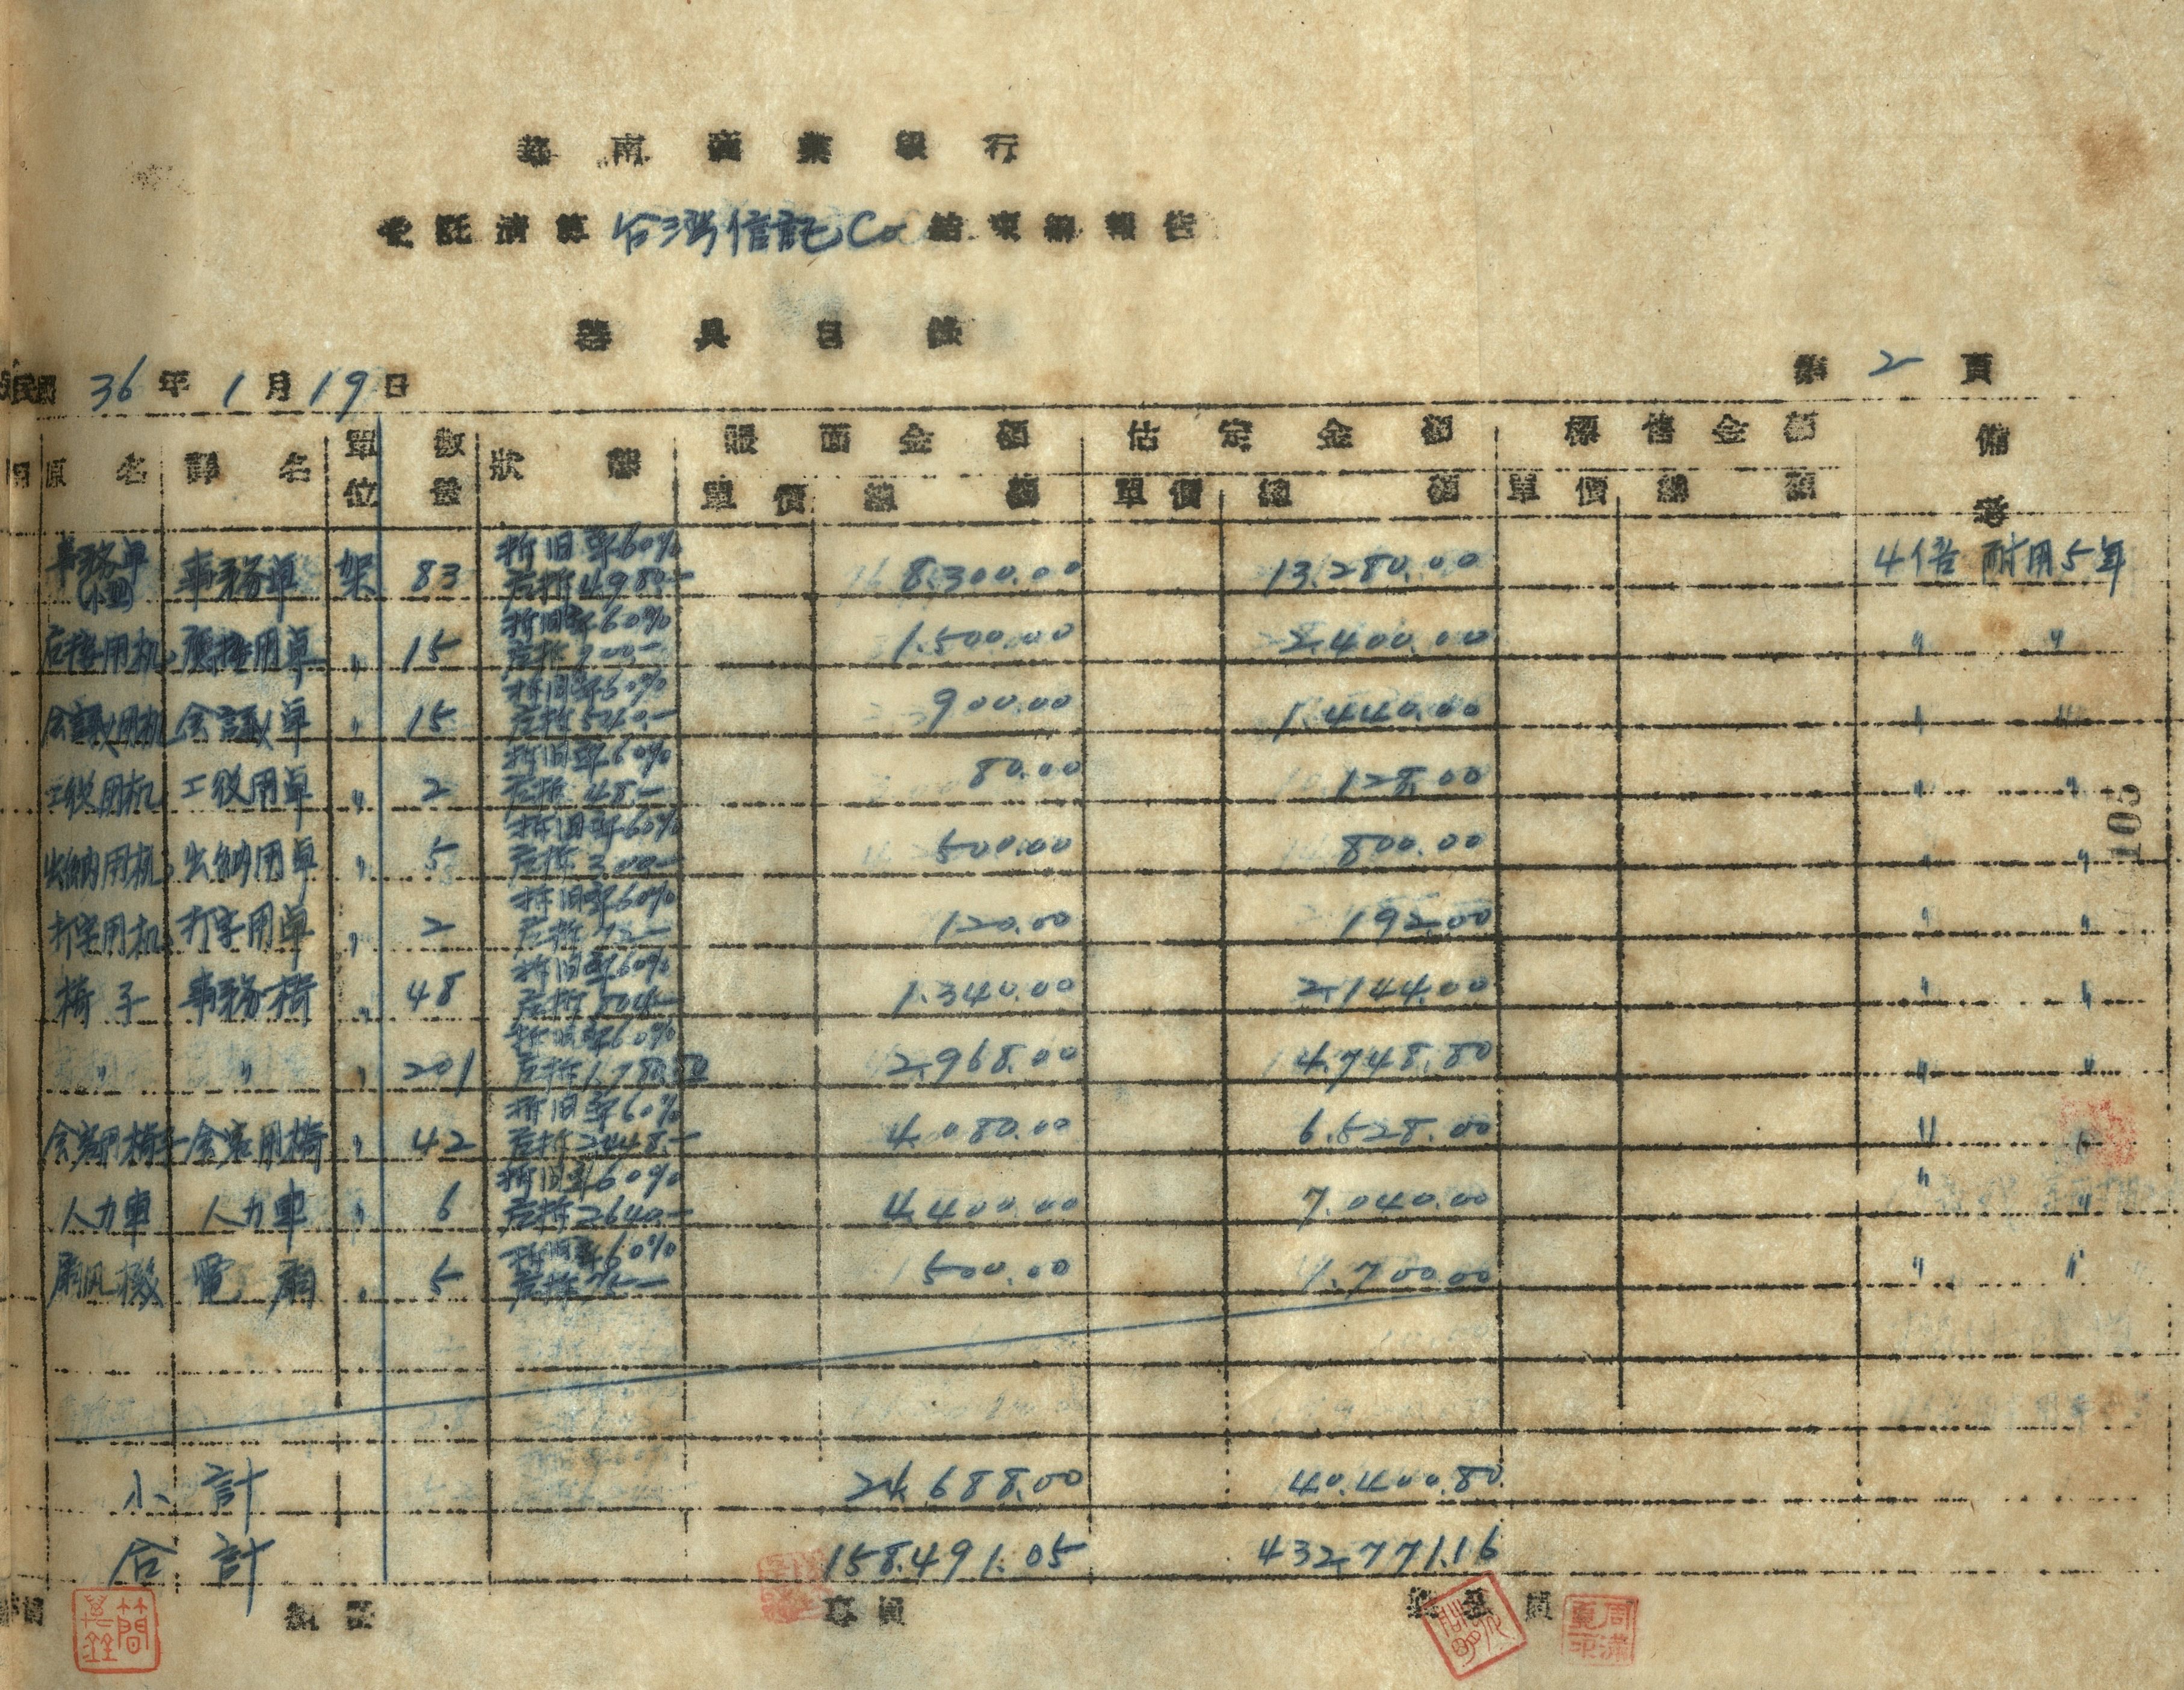 華南商業銀行
受託清算台灣信託Co結束總報告
器具目錄
民國36年1月19日 第2頁
原名 譯名 單位 數量 狀態 賬面金額 估定金額 標售金額 備考
單價 總額 單價 總額 單價 總額
事務卓(小型) 事務卓 架 83 折旧率60% 應折4980.- 8.300.00 13.280.00 4倍 耐用5年
应接用机 應接用卓 〃 15 折旧率60% 应折900- 1.500.00 2.400.00 〃 〃
会議用机 会議卓 〃 15 折旧率60% 应折540.- 900.00 1.440.00 〃 〃
工役用机 工役用卓 〃 2 折旧率60% 应折48.- 80.00 128.00 〃 〃
出納用机 出納用卓 〃 5 折旧率60% 应折300- 500.00 800.00 〃 〃
打字用机 打字用卓 〃 2 折旧率60% 应折72- 120.00 192.00 〃 〃
椅子 事務椅 〃 48 折旧率60% 应折804- 1.340.00 2.144.00 〃 〃
〃 〃 〃 201 折旧率60% 应折1.780.80 2.968.00 4.748.80 〃 〃
会客用椅子 会客用椅 〃 42 折旧率60% 应折2448.- 4.080.00 6.528.00 〃 〃
人力車 人力車 〃 6 折旧率60% 应折2640.- 4.400.00 7.040.00 〃 〃
扇風機 電扇 〃 5 折旧率60% 应折75- 500.00 1.700.00 〃 〃
小計 24.688.00 40.400.80
合計 158.491.05 432.771.16
105